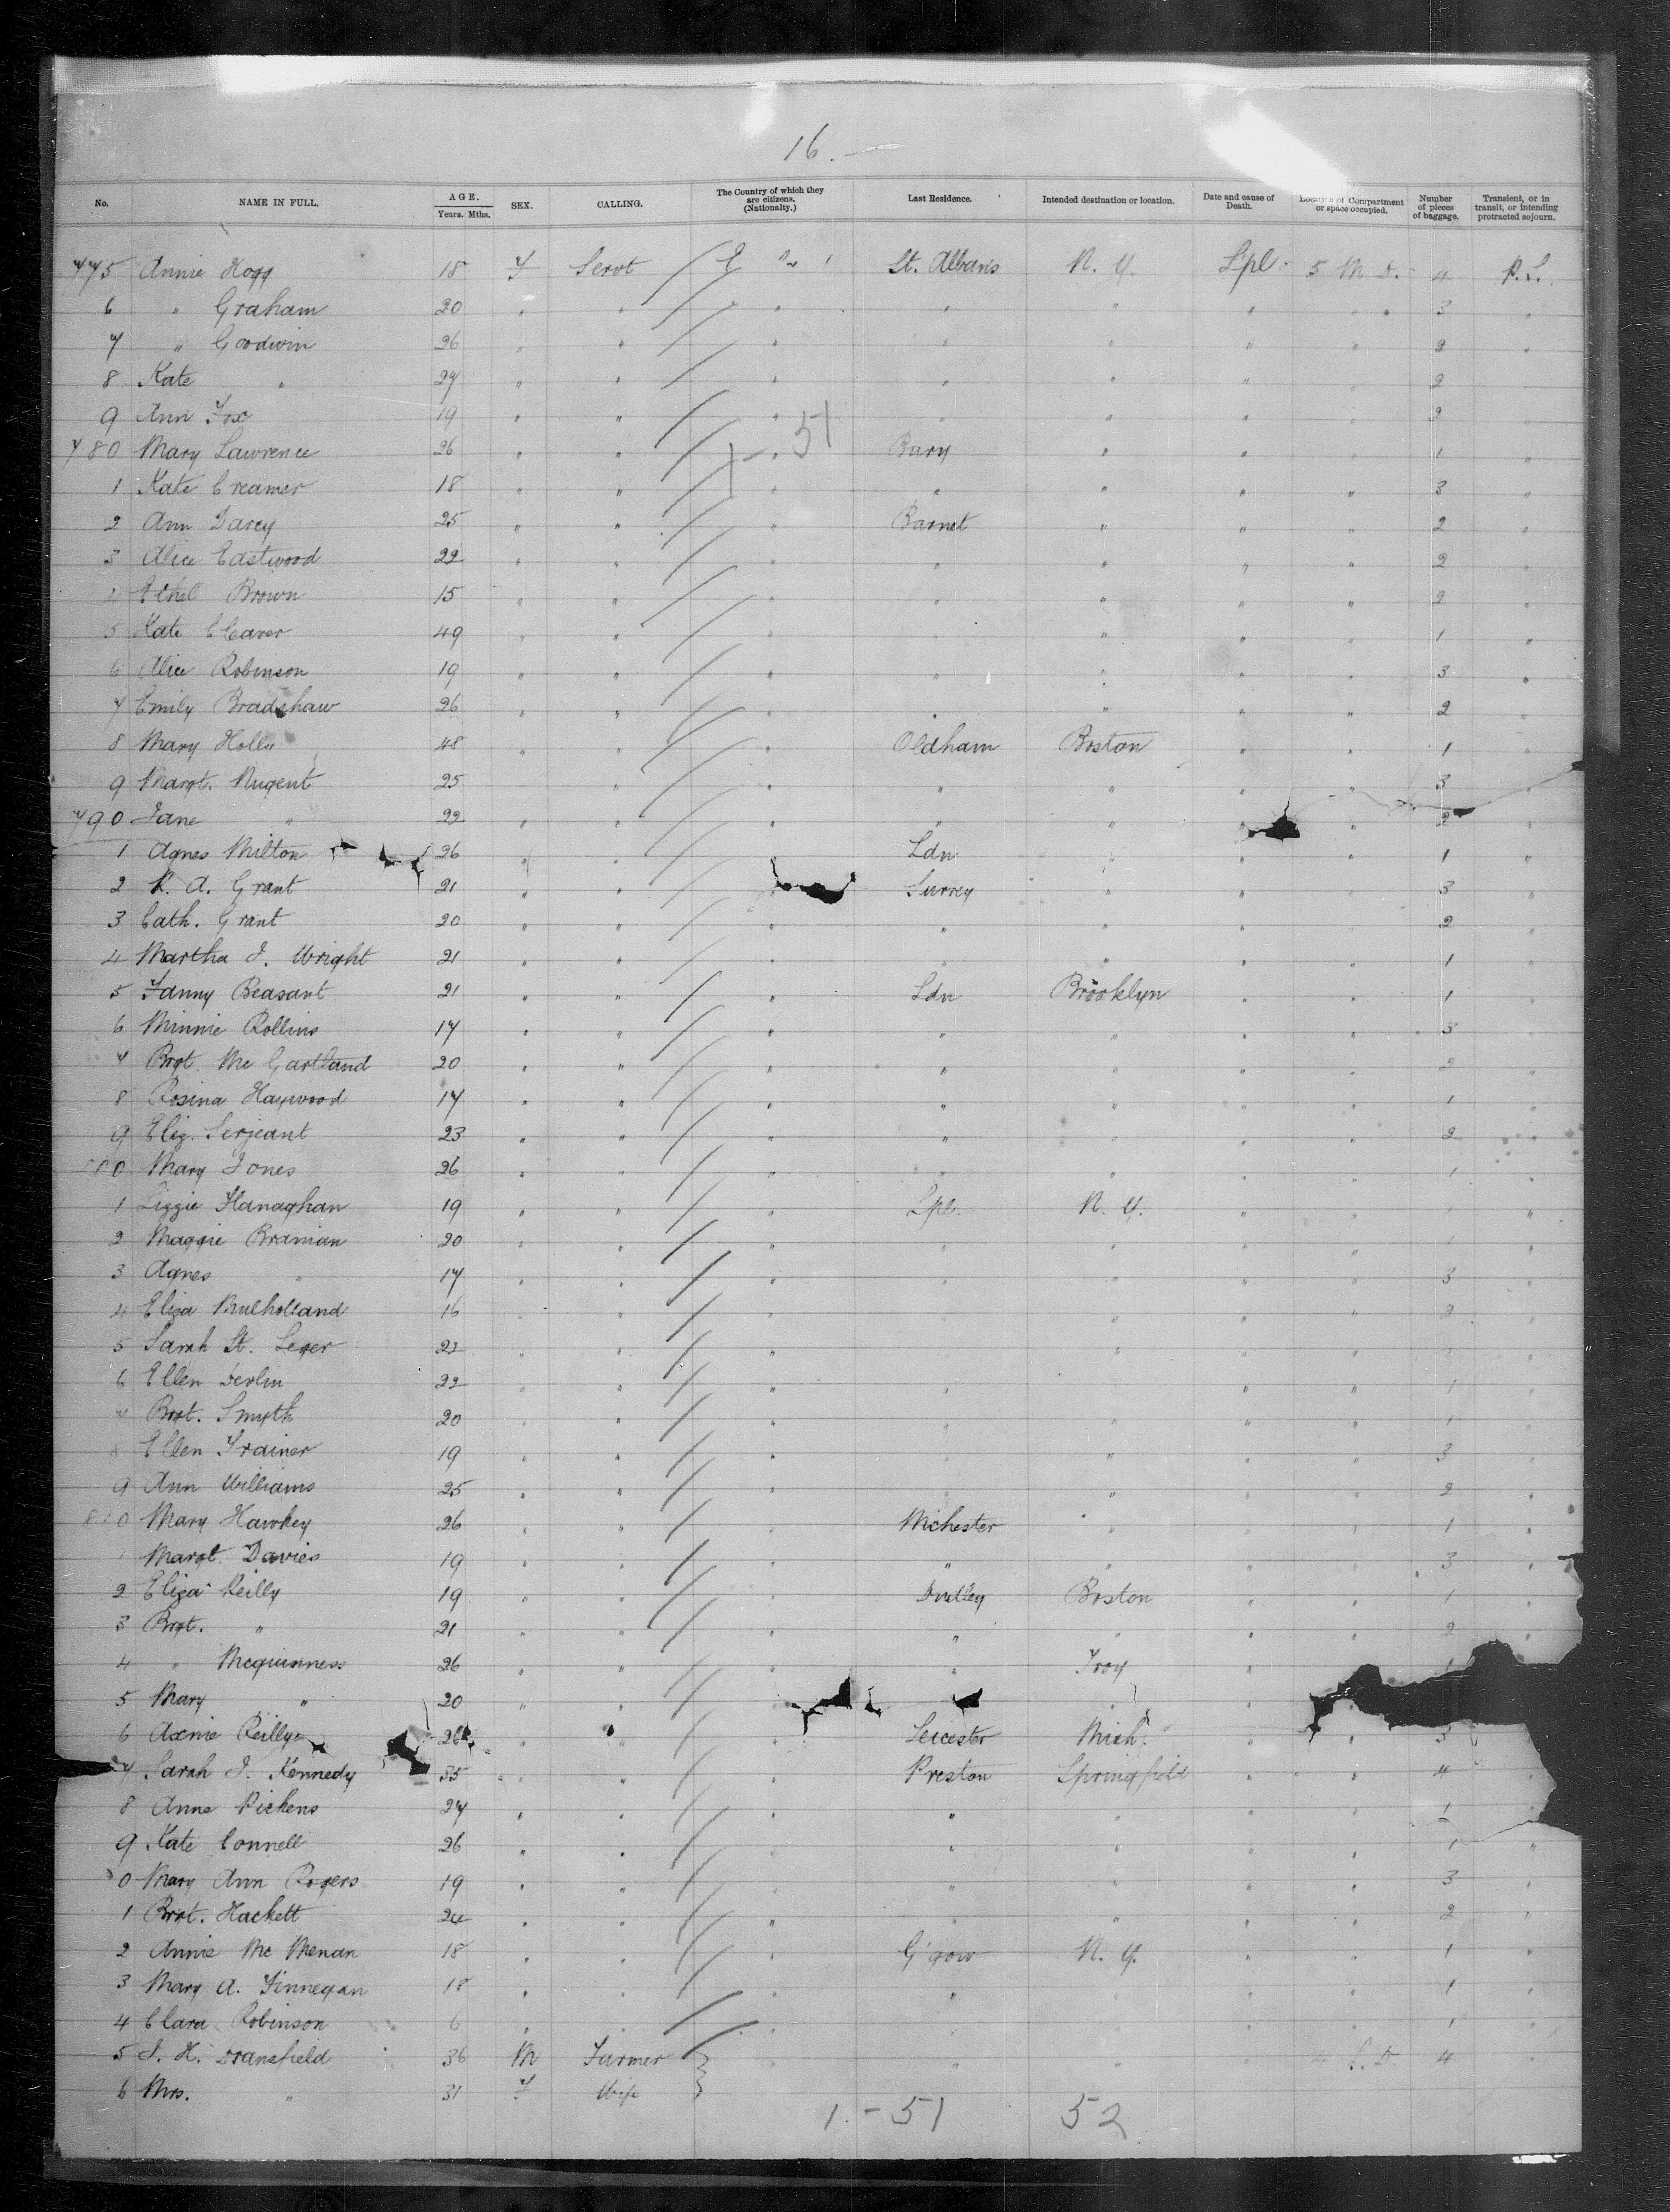 16. —
No. NAME IN FULL. AGE. Years. Mths. SEX. CALLING. The Country of which they are citizens. (Nationalty.) Last Residence. Intended destination or location. Date and cause of Death. Location of Compartment or space occupied. Number of pieces of baggage. Transient, or in transit, or intending protracted sojourn.
775 Annie Hogg 18 F Servt St. Albans N. Y. Lpl. 5 M. D. 4 P.S.
6 " Graham 20 " " " " " " " 3 "
7 " Goodwin 26 " " " " " " " 2 "
8 Kate " 27 " " " " " " 2
9 Ann Fox 19 " " " " " " 2
51
780 Mary Lawrence 26 " " " Bury " " 1 "
1 Kate Creamer 18 " " " " " " " 3 "
2 Ann Darcy 25 " " " Barnet " " " 2 "
3 Alice Eastwood 22 " " " " " " " 2 "
4 Ethel Brown 15 " " " " " " " 2 "
5 Kate Cleaver 49 " " " " " " 1 "
6 Alice Robinson 19 " " " " " " " 3 "
7 Emily Bradshaw 26 " " " " " " " 2 "
8 Mary Holly 48 " " " Oldham Boston " " 1 "
9 Margt. Nugent 25 " " " " " " 3 "
790 Jane " 22 " " " " " " " 2 "
1 Agnes Milton 26 " " Ldn " " " 1 "
2 K. A. Grant 21 " " " Surrey " " 3 "
3 Cath. Grant 20 " " " " " " 2 "
4 Martha J. Wright 21 " " " " " " " 1 "
5 Fanny Beasant 21 " " " Ldn Brooklyn " " 1 "
6 Minnie Rollins 17 " " " " " " " 3 "
7 Brgt. Mc Gartland 20 " " " " " " " 2 "
8 Rosina Haywood 17 " " " " " " " 1 "
9 Eliz. Serjeant 23 " " " " " " 2 "
800 Mary Jones 26 " " " " " " " 1 "
1 Lizzie Flanaghan 19 " " " Lpl. N. Y. " " "
2 Maggie Branian 20 " " " " " " " "
3 Agnes " 17 " " " " " " " 3 "
4 Eliza Mulholland 16 " " " " " " 2 "
5 Sarah St. Leger 22 " " " " " " "
6 Ellen Devlin 22 " " " " " " 1 "
7 Brgt. Smyth 20 " " " " " " " 1 "
8 Ellen Trainer 19 " " " " " " " 3 "
9 Ann Williams 25 " " " " " " 2 "
810 Mary Hawkey 26 " " " Mchester " " 1 "
Margt. Davies 19 " " " " " " " 3 "
2 Eliza Reilly 19 " " " Dudley Boston " " 1 "
3 Brgt. " 21 " " " " " " " 2 "
4 " Mcguinness 26 " " " " Troy " 1
5 Mary " 20 " " "
6 Annie Reilly 26 " " " Leicester Mich. " " 3
7 Sarah J. Kennedy 35 " " " Preston Springfield " " 4 "
8 Anne Pickens 27 " " " " " " " 1
9 Kate Connell 26 " " " " " " " 1 "
0 Mary Ann Rogers 19 " " " " " " " 3 "
1 Brgt. Hackett 24 " " " " " " " 2 "
2 Annie Mc Menan 18 " " " G'gow N. Y. " " 1 "
3 Mary A. Finnegan 18 " " " " " " " 1 "
4 Clara Robinson 6 " " " " " " " 1 "
5 J. H. Dransfield 36 M Farmer " " " " 4 S. D. 4 "
6 Mrs. " 31 F Wife
1. - 51 52